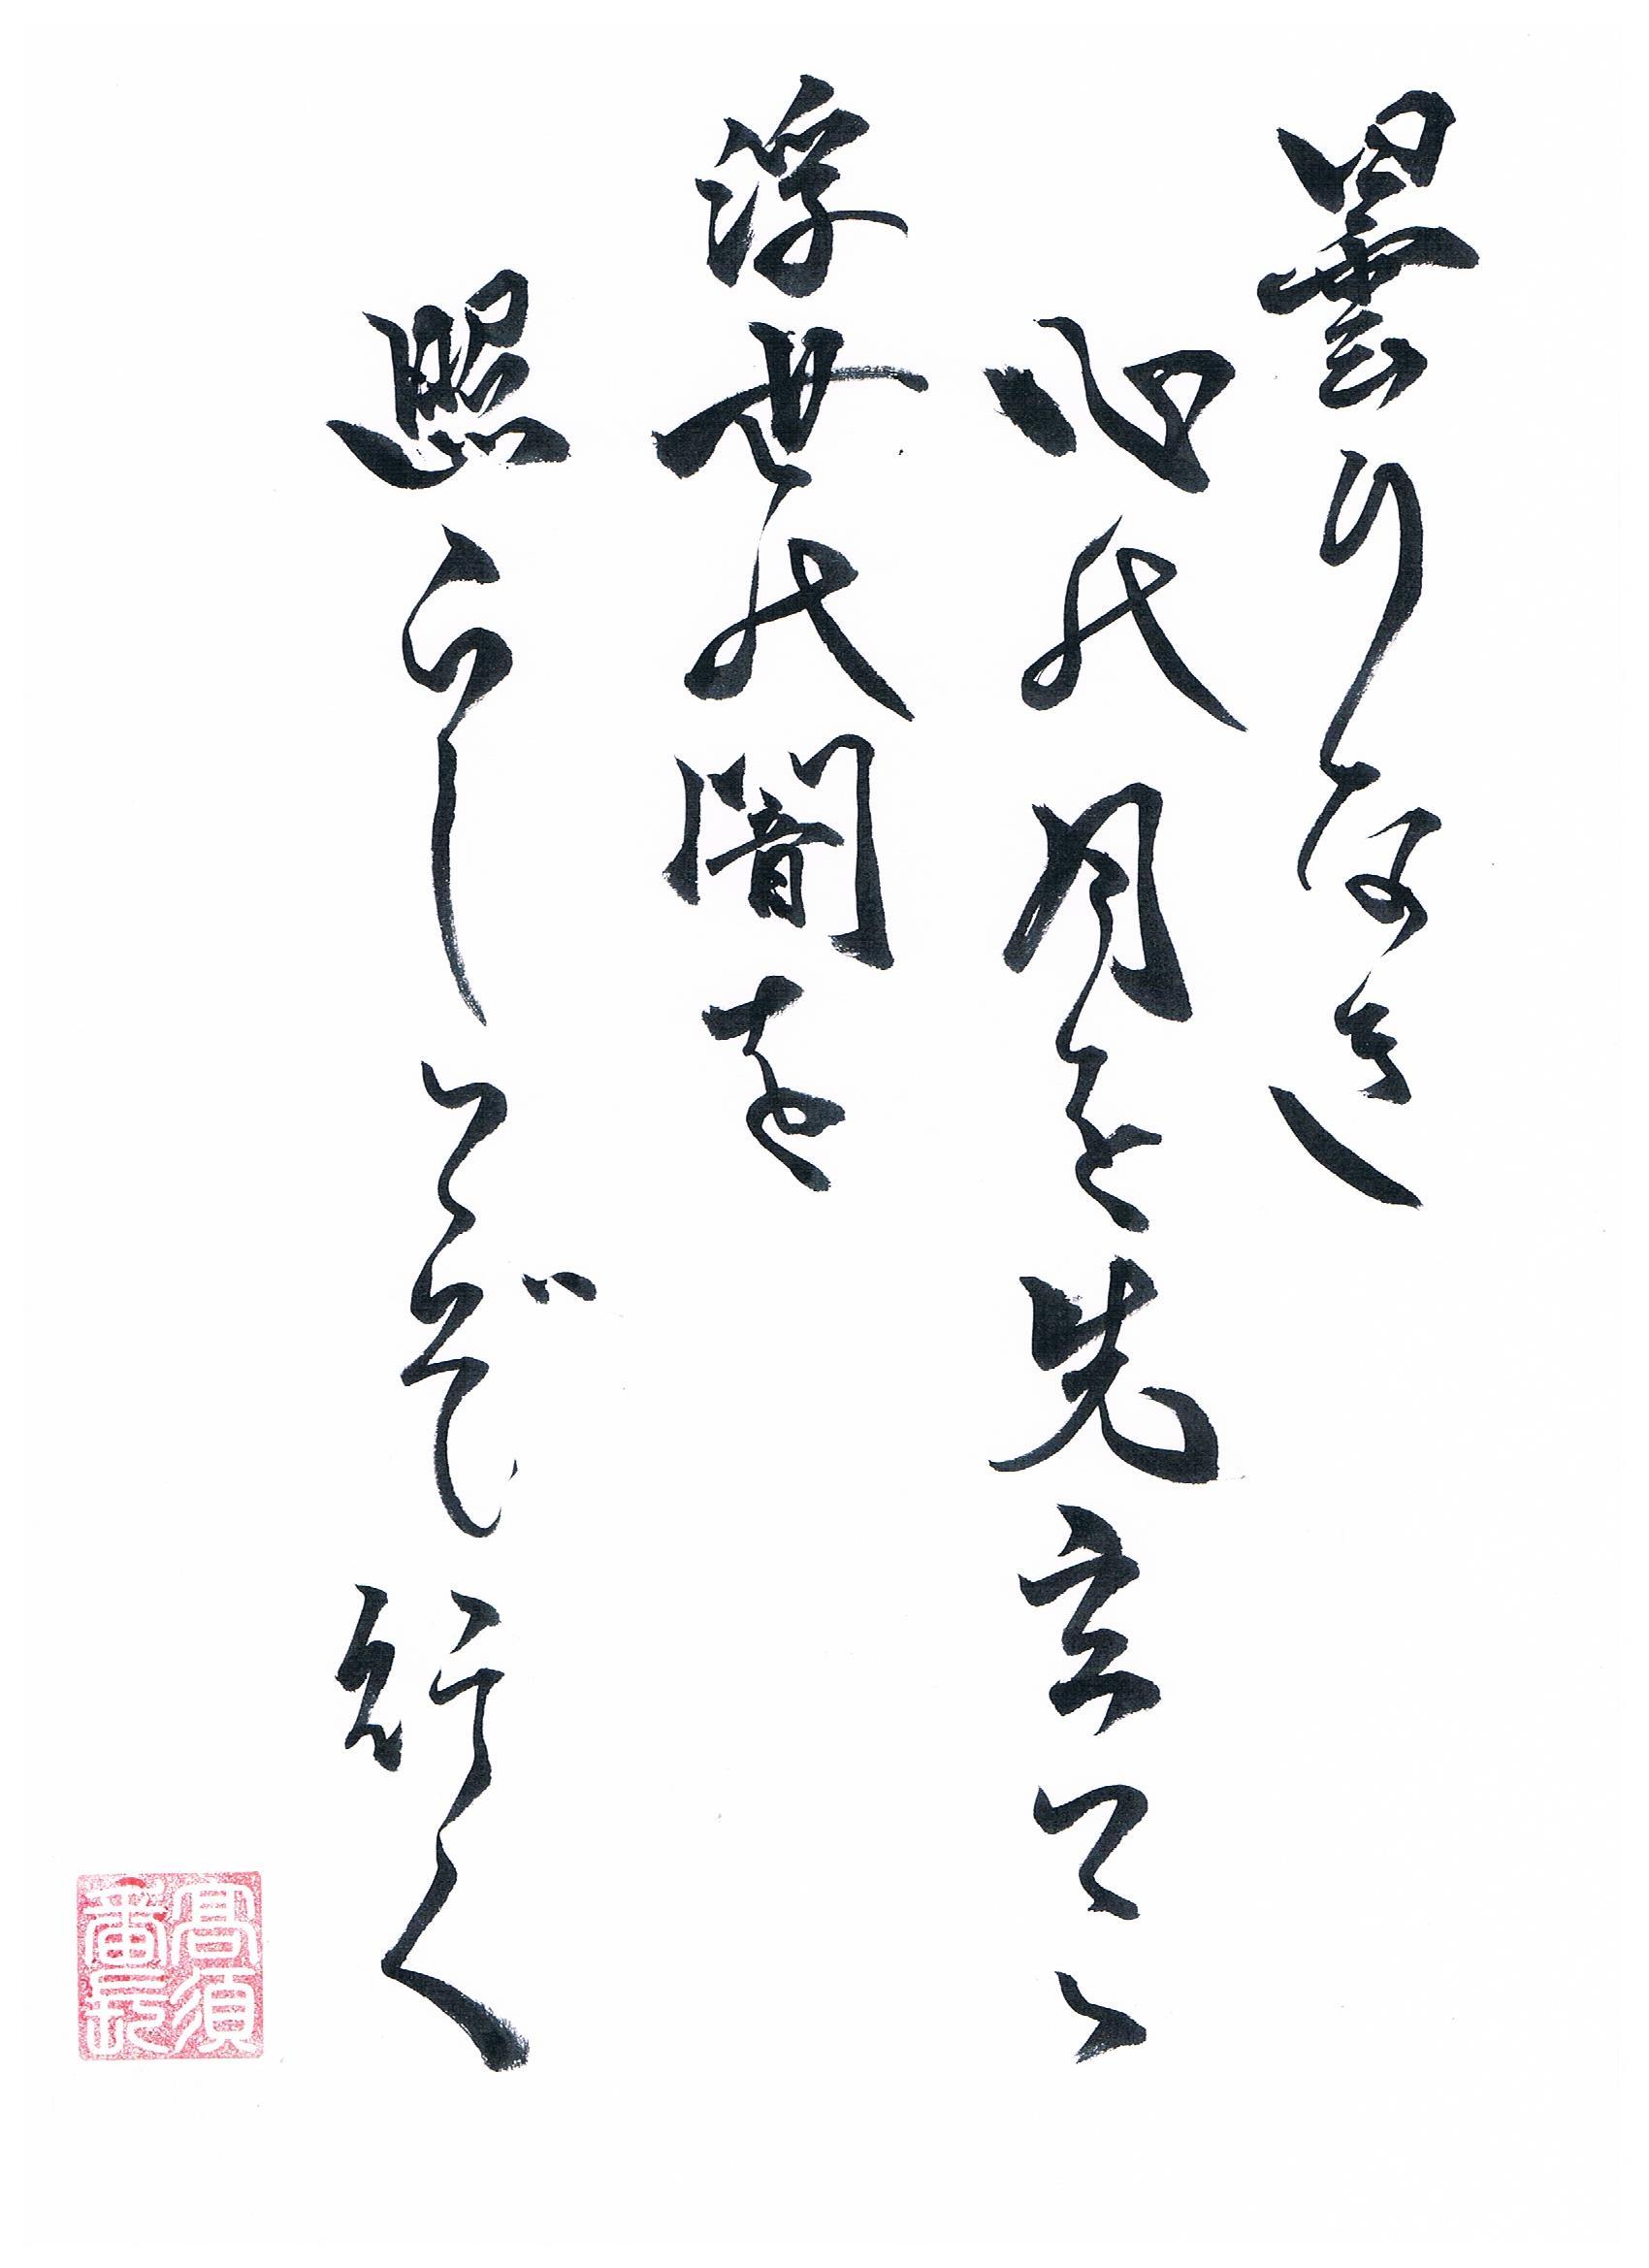 曇りなき
心の月を先立てて
浮世の闇を
照らしてぞ行く
高須
番長